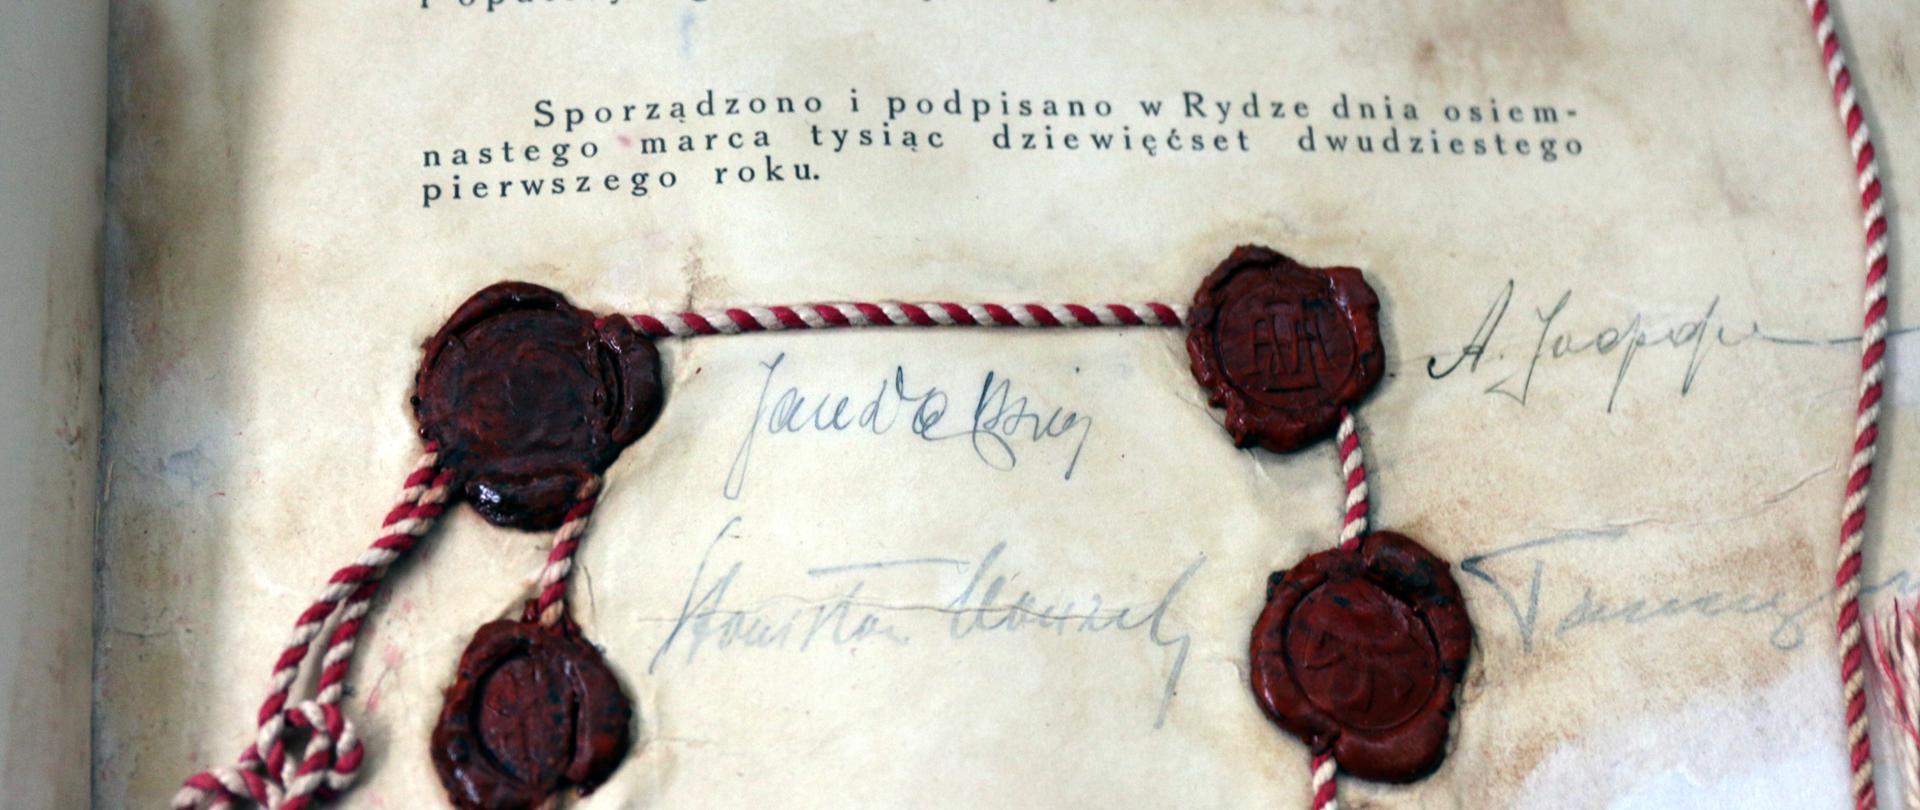 Sporządzono i podpisano w Rydze dnia osiem-
nastego marca tysiąc dziewięćset dwudziestego
pierwszego roku.
Jan Dąbski
A. Joffe
Stanisław Kauzik